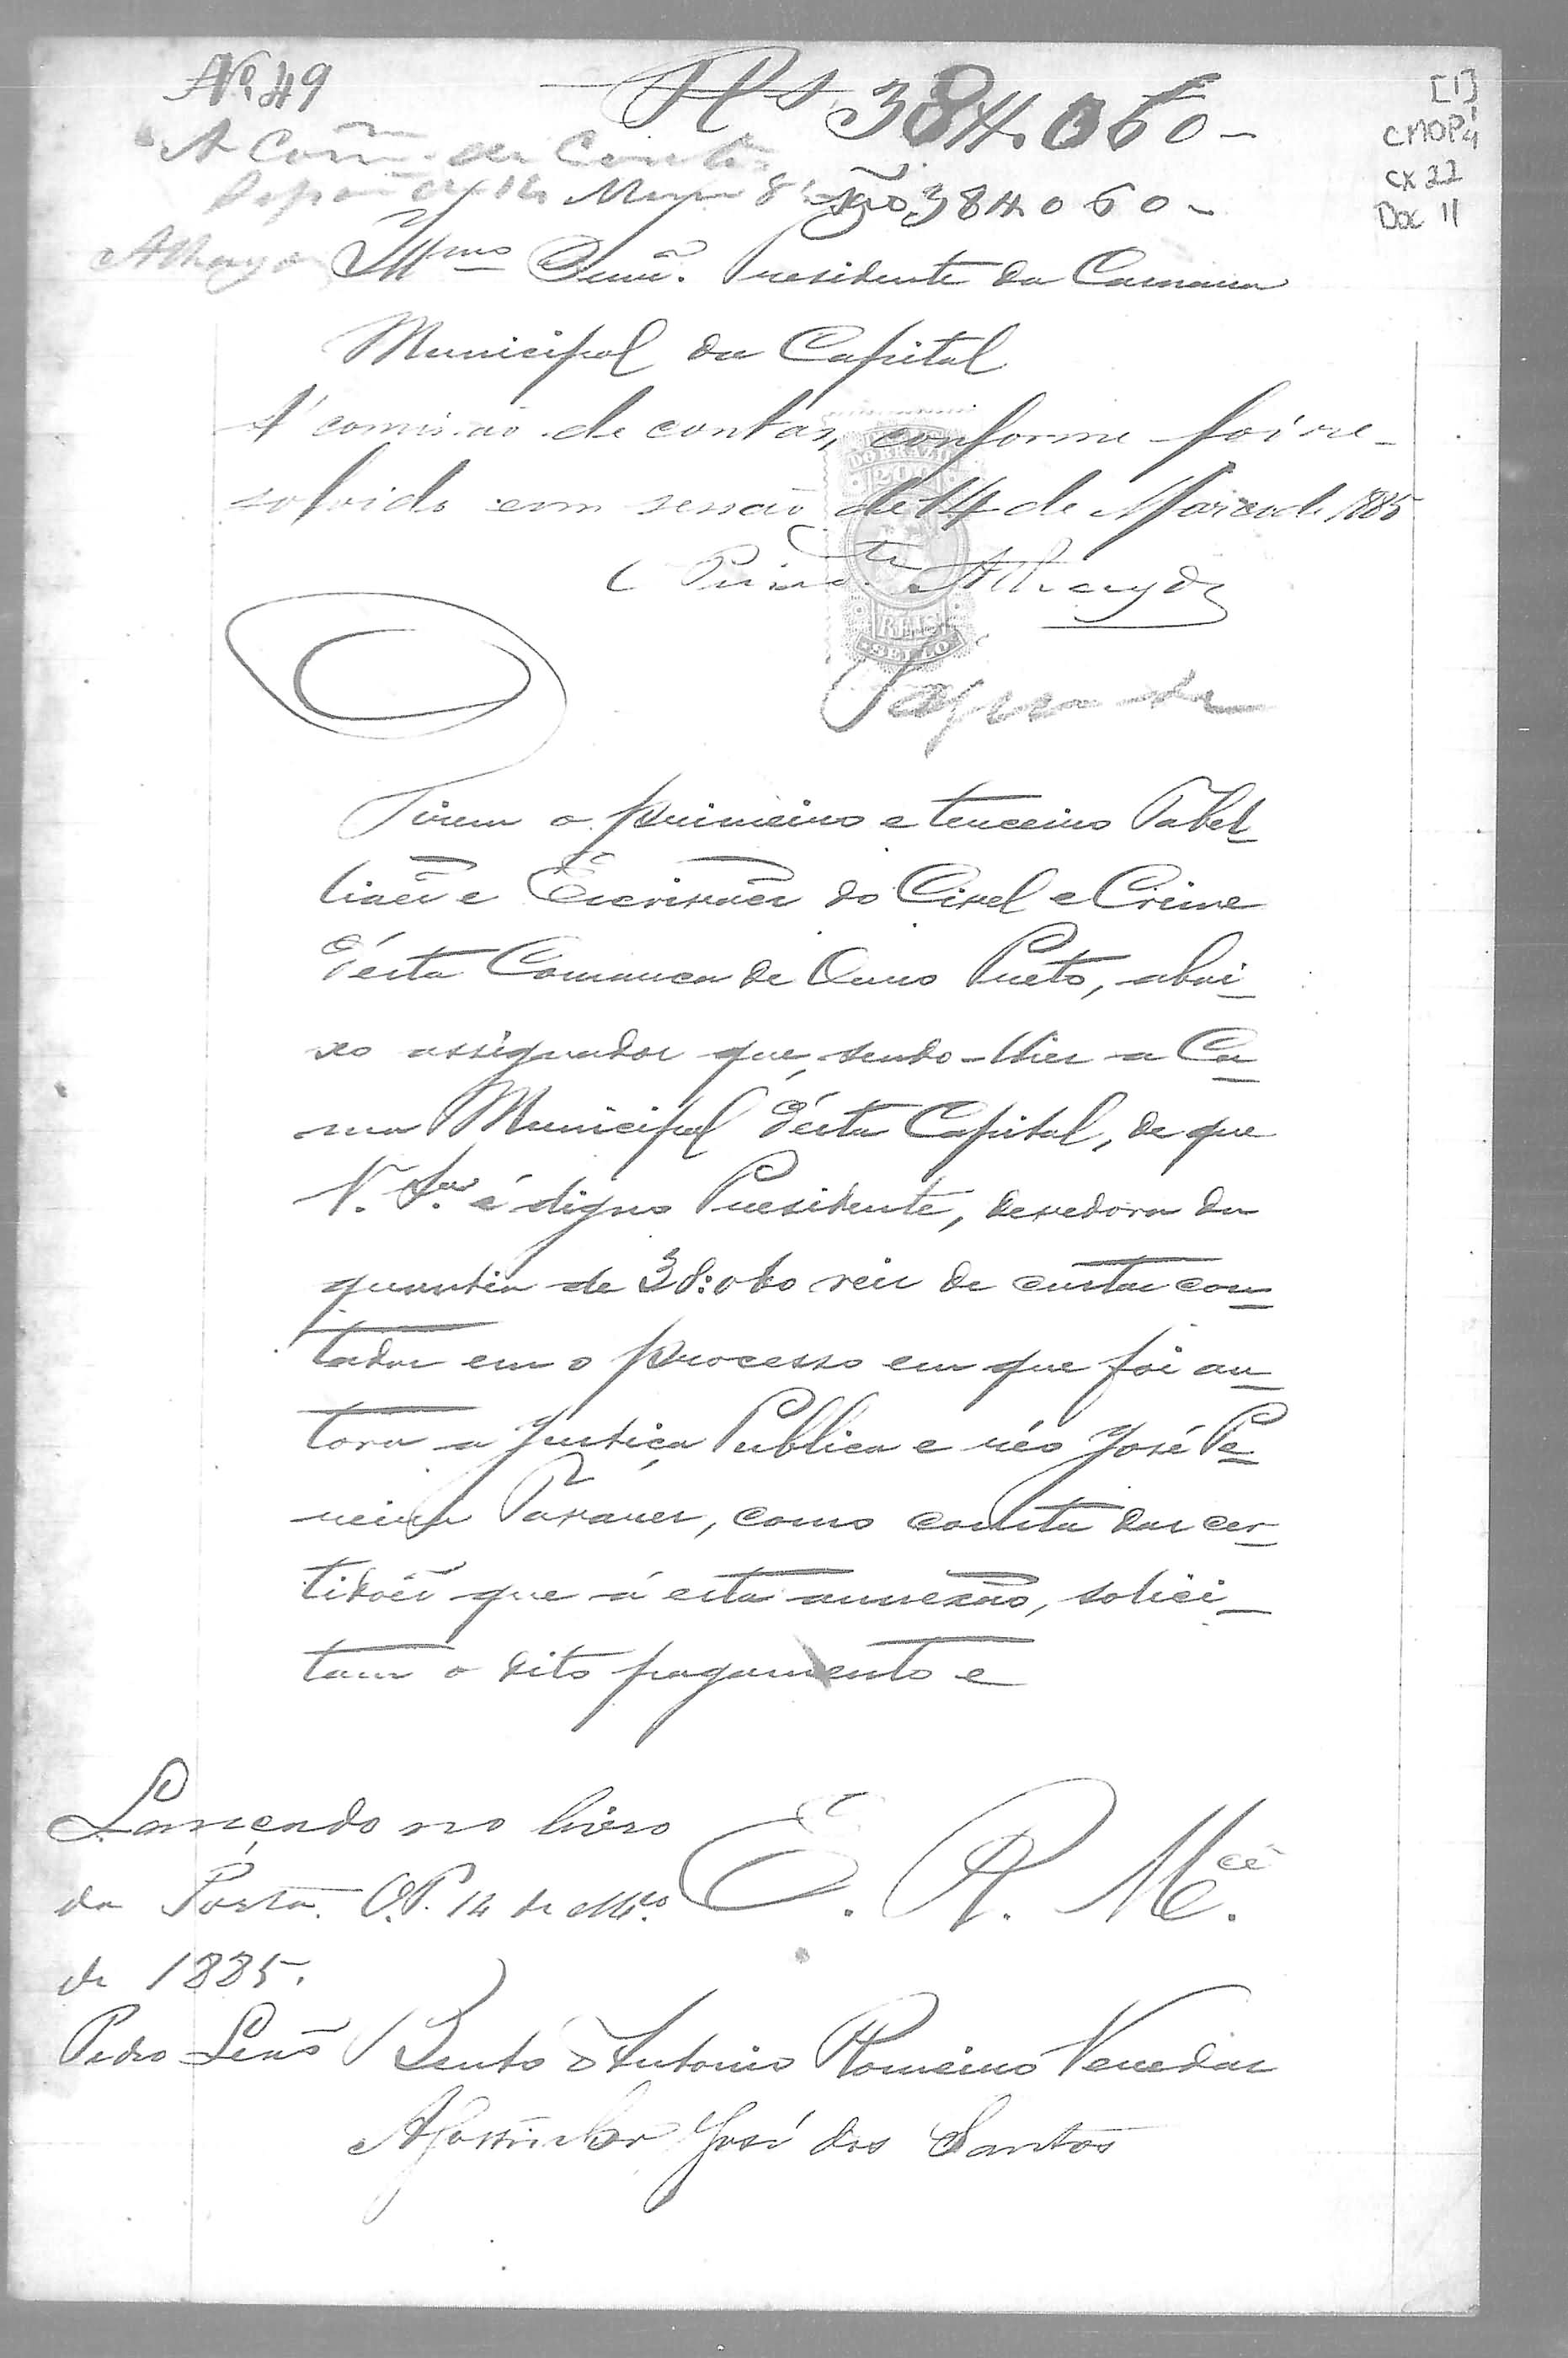 Nº 49
Rs 384.060-
[1]
CMOP
cx 22
Doc 11
A Com.
384.060-
Illmo Presidente da Camara
Municipal da Capital
Á comissão de contas, conforme foi re-
solvido em sessão de 14 de Março de 1885
DO BRAZIL
200
REIS
SELLO
Dizem o primeiro e terceiro Tabel-
liães e Escrivães do Civel e Crime
d'ésta Comarca de Ouro Preto, abai-
xo assignados que, sendo-lhes a Ca-
mara Municipal d'ésta Capital, de que
V. Sa. é digno Presidente, devedora da
quantia de 38:060 reis de custas con-
tadas em o processo em que foi au-
tora a Justiça Publica e réo José Pe-
reira Tavares, como consta das cer-
tidões que á esta annexão, solici-
tam o dito pagamento e
E. R. Mcê.
Lançado no livro
da Porta. O.P. 14 de Mço.
de 1885.
Pedro
Bento Antonio Romeiro Veredas
José dos Santos